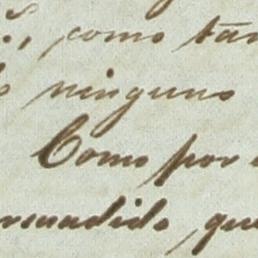 , como tan
ninguno
Como por
rsuadido que